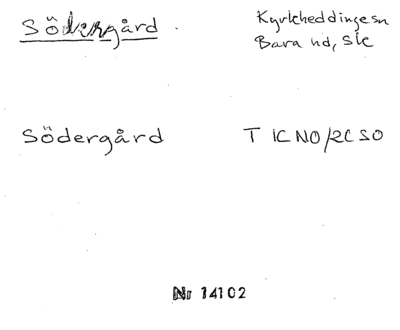 Södergård
Kyrkheddinge sn
Bara hd, Sk
Södergård
T ICNO/2CSO
Nr 14102